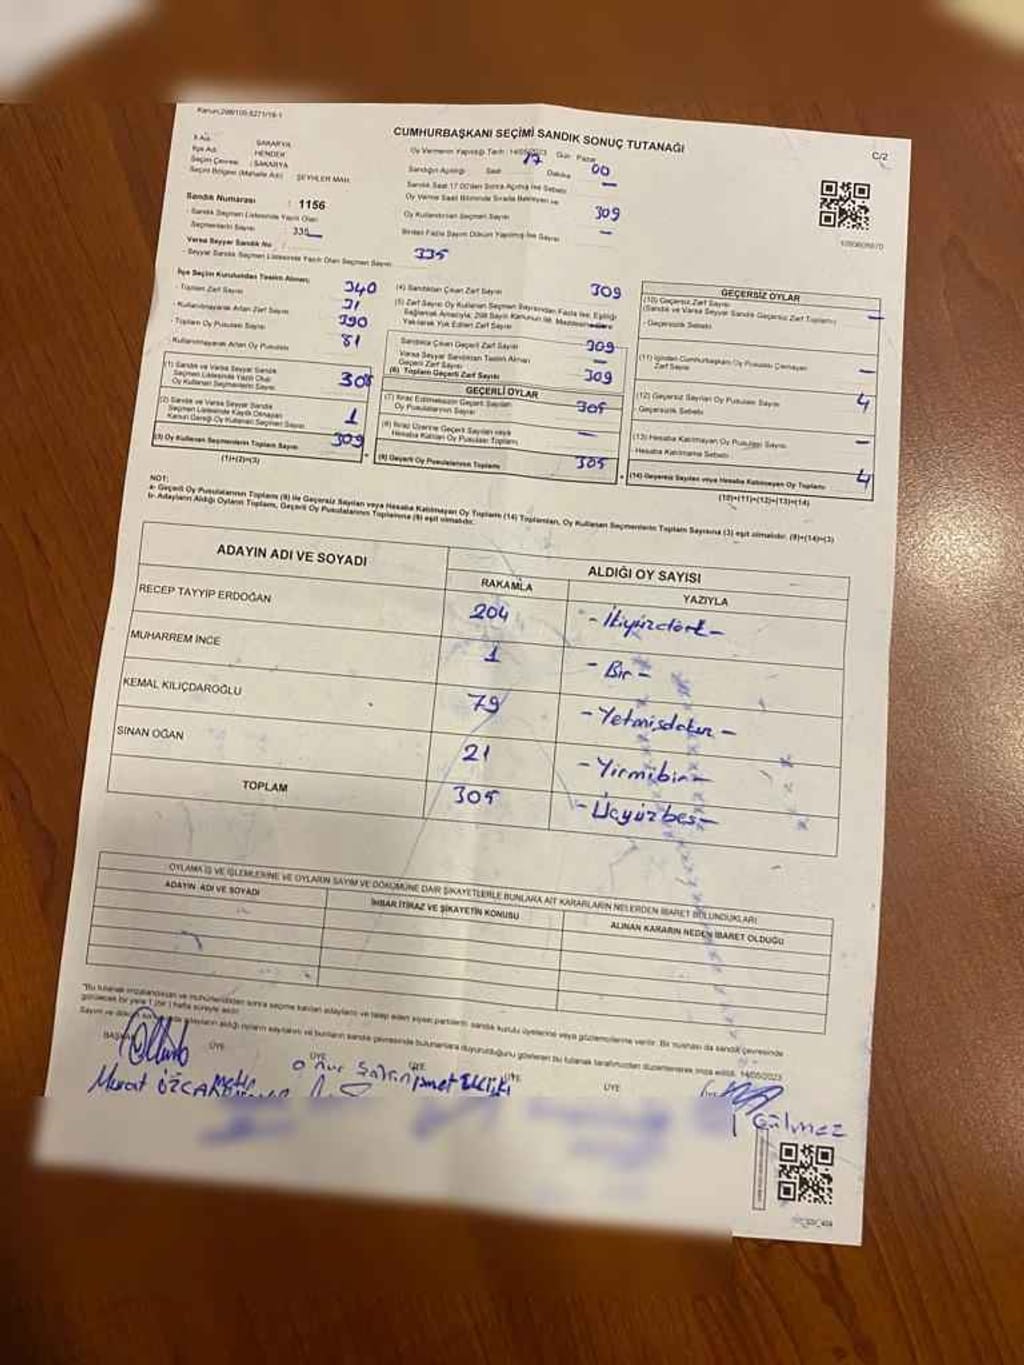 Kanun:298/105-6271/19-1
CUMHURBAŞKANI SEÇİMİ SANDIK SONUÇ TUTANAĞI
C/2
İl Adı : SAKARYA
İlçe Adı : HENDEK
Seçim Çevresi : SAKARYA
Seçim Bölgesi (Mahalle Adı) : ŞEYHLER MAH.
Oy Vermenin Yapıldığı Tarih : 14/05/2023 Gün : Pazar
Sandığın Açıldığı Saat 17 Dakika 00
Sandık Saat 17.00'den Sonra Açılmış İse Sebebi —
Oy Verme Saati Bitiminde Sırada Bekleyen
Oy Kullandırılan Seçmen Sayısı 309
Birden Fazla Sayım Döküm Yapılmış İse Sayısı —
Sandık Numarası : 1156
- Sandık Seçmen Listesinde Yazılı Olan
Seçmenlerin Sayısı : 335
Varsa Seyyar Sandık No :
- Seyyar Sandık Seçmen Listesinde Yazılı Olan Seçmen Sayısı 335
İlçe Seçim Kurulundan Teslim Alınan;
- Toplam Zarf Sayısı 340
- Kullanılmayarak Artan Zarf Sayısı 31
- Toplam Oy Pusulası Sayısı 390
- Kullanılmayarak Artan Oy Pusulası 81
(1) Sandık ve Varsa Seyyar Sandık
Seçmen Listesinde Yazılı Olup
Oy Kullanan Seçmenlerin Sayısı 308
(2) Sandık ve Varsa Seyyar Sandık
Seçmen Listesinde Kayıtlı Olmayan
Kanun Gereği Oy Kullanan Seçmen Sayısı 1
(3) Oy Kullanan Seçmenlerin Toplam Sayısı 309
(1)+(2)=(3)
(4) Sandıktan Çıkan Zarf Sayısı 309
(5) Zarf Sayısı Oy Kullanan Seçmen Sayısından Fazla İse, Eşitliği
Sağlamak Amacıyla, 298 Sayılı Kanunun 98. Maddesine Göre
Yakılarak Yok Edilen Zarf Sayısı
Sandıkta Çıkan Geçerli Zarf Sayısı 309
Varsa Seyyar Sandıktan Teslim Alınan
Geçerli Zarf Sayısı —
(6) Toplam Geçerli Zarf Sayısı 309
GEÇERLİ OYLAR
(7) İtiraz Edilmeksizin Geçerli Sayılan
Oy Pusulalarının Sayısı 305
(8) İtiraz Üzerine Geçerli Sayılan veya
Hesaba Katılan Oy Pusulası Toplamı —
(9) Geçerli Oy Pusulalarının Toplamı 305
GEÇERSİZ OYLAR
(10) Geçersiz Zarf Sayısı
(Sandık ve Varsa Seyyar Sandık Geçersiz Zarf Toplamı) —
- Geçersizlik Sebebi
(11) İçinden Cumhurbaşkanı Oy Pusulası Çıkmayan
Zarf Sayısı —
(12) Geçersiz Sayılan Oy Pusulası Sayısı 4
- Geçersizlik Sebebi
(13) Hesaba Katılmayan Oy Pusulası Sayısı —
- Hesaba Katılmama Sebebi
(14) Geçersiz Sayılan veya Hesaba Katılmayan Oy Toplamı 4
(10)+(11)+(12)+(13)=(14)
NOT:
a- Geçerli Oy Pusulalarının Toplamı (9) ile Geçersiz Sayılan veya Hesaba Katılmayan Oy Toplamı (14) Toplamları, Oy Kullanan Seçmenlerin Toplam Sayısına (3) eşit olmalıdır. (9)+(14)=(3)
b- Adayların Aldığı Oyların Toplamı, Geçerli Oy Pusulalarının Toplamına (9) eşit olmalıdır.
ADAYIN ADI VE SOYADI
ALDIĞI OY SAYISI
RAKAMLA YAZIYLA
RECEP TAYYİP ERDOĞAN 204 - İkiyüzdört -
MUHARREM İNCE 1 - Bir -
KEMAL KILIÇDAROĞLU 79 - Yetmişdokuz -
SİNAN OĞAN 21 - Yirmibir -
TOPLAM 305 - Üçyüzbeş -
OYLAMA İŞ VE İŞLEMLERİNE VE OYLARIN SAYIM VE DÖKÜMÜNE DAİR ŞİKAYETLERLE BUNLARA AİT KARARLARIN NELERDEN İBARET BULUNDUKLARI
ADAYIN ADI VE SOYADI İHBAR İTİRAZ VE ŞİKAYETİN KONUSU ALINAN KARARIN NEDEN İBARET OLDUĞU
"Bu tutanak imzalandıktan ve mühürlendikten sonra seçime katılan adayların ve talep eden siyasi partilerin sandık kurulu üyelerine veya gözlemcilerine verilir. Bir nüshası da sandık çevresinde
görülecek bir yere 1 (bir) hafta süreyle asılır.
adayların aldığı oyların sayılarını ve bunların sandık çevresinde bulunanlara duyurulduğunu gösteren bu tutanak tarafımızdan düzenlenerek imza edildi. 14/05/2023
BAŞKAN ÜYE ÜYE ÜYE ÜYE ÜYE
Murat ÖZCAN Metin Onur ismet
Gülmez